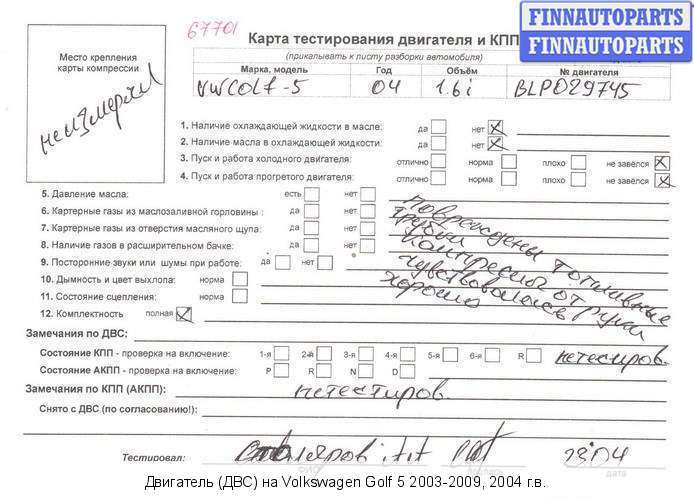 67701
FINNAUTOPARTS
FINNAUTOPARTS
Карта тестирования двигателя и КПП
(прикалывать к листу разборки автомобиля)
Место крепления
карты компрессии
неизмеряли
Марка, модель Год Объём № двигателя
VWGOLF-5 04 1.6i BLP029745
1. Наличие охлаждающей жидкости в масле: да нет
2. Наличие масла в охлаждающей жидкости: да нет
3. Пуск и работа холодного двигателя: отлично норма плохо не завёлся
4. Пуск и работа прогретого двигателя: отлично норма плохо не завёлся
5. Давление масла: есть нет
6. Картерные газы из маслозаливной горловины : да нет
7. Картерные газы из отверстия масляного щупа: да нет
8. Наличие газов в расширительном бачке: да нет
9. Посторонние звуки или шумы при работе: да нет
10. Дымность и цвет выхлопа: норма
11. Состояние сцепления: норма
12. Комплектность полная
повреждены топливные
трубки
компрессия от руки
чувствовалась
хорошо
Замечания по ДВС:
Состояние КПП - проверка на включение: 1-я 2-я 3-я 4-я 5-я 6-я R нетестиров.
Состояние АКПП - проверка на включение: P R N D
Замечания по КПП (АКПП): нетестиров.
Снято с ДВС (по согласованию!):
Тестировал: 23.04
дата
Двигатель (ДВС) на Volkswagen Golf 5 2003-2009, 2004 г.в.